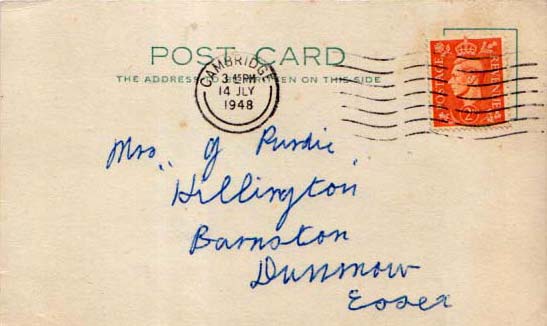 POST CARD
THE ADDRESS TO BE WRITTEN ON THIS SIDE
CAMBRIDGE
3 15PM
14 JLY
1948
POSTAGE REVENUE
2D
Mrs G Purdie
"Hillington"
Barnston
Dunmow
Essex